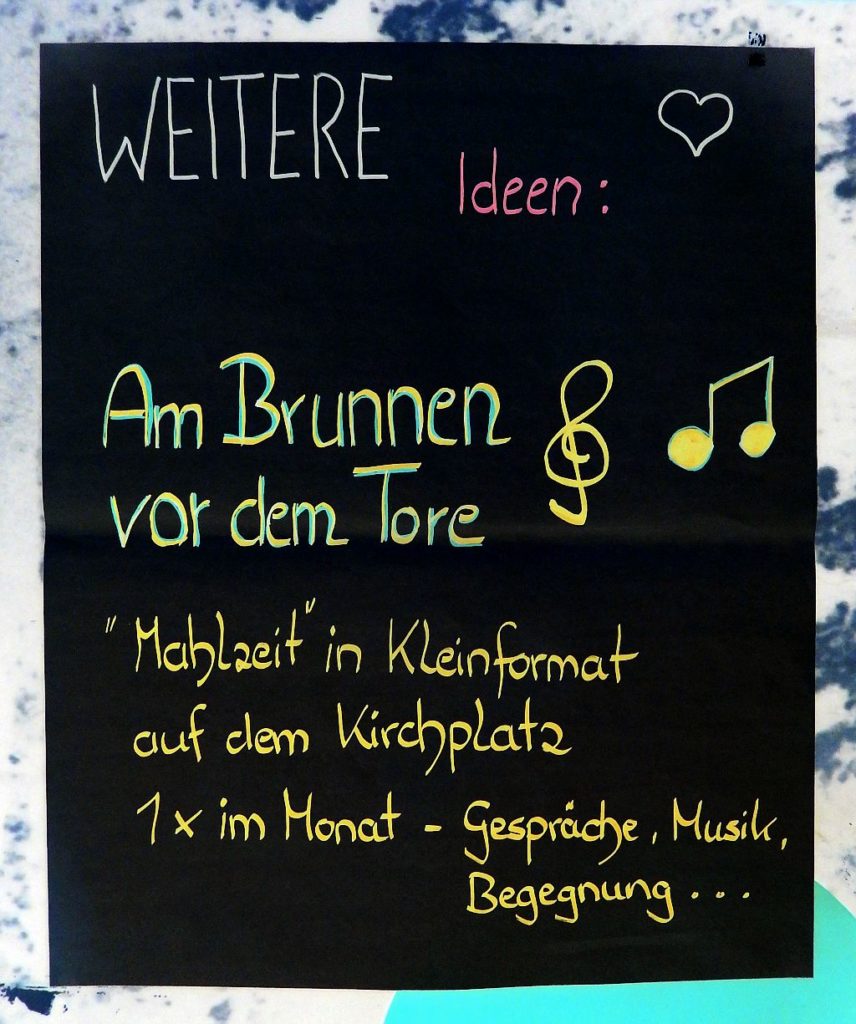 WEITERE
Ideen:
Am Brunnen
vor dem Tore
"Mahlzeit" in Kleinformat
auf dem Kirchplatz
1x im Monat - Gespräche, Musik,
Begegnung...